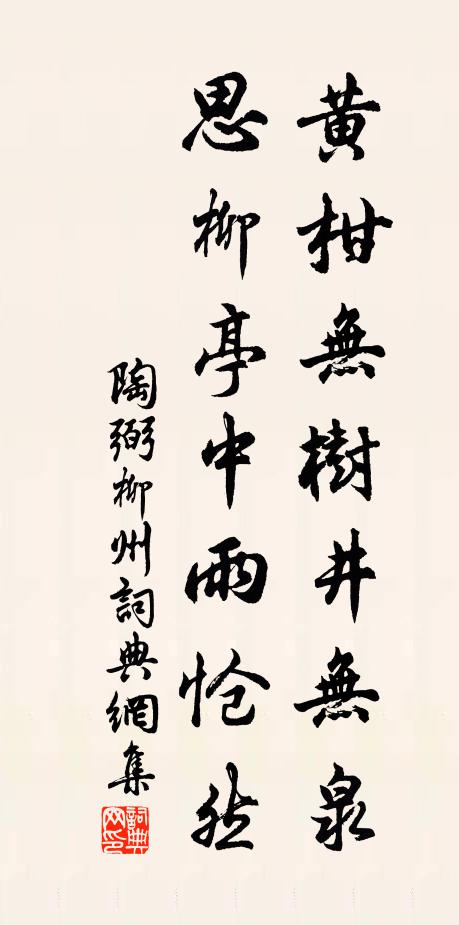 黄柑無樹井無泉
思柳亭中雨愴然
陶弼柳州詞典網集
詞典網印